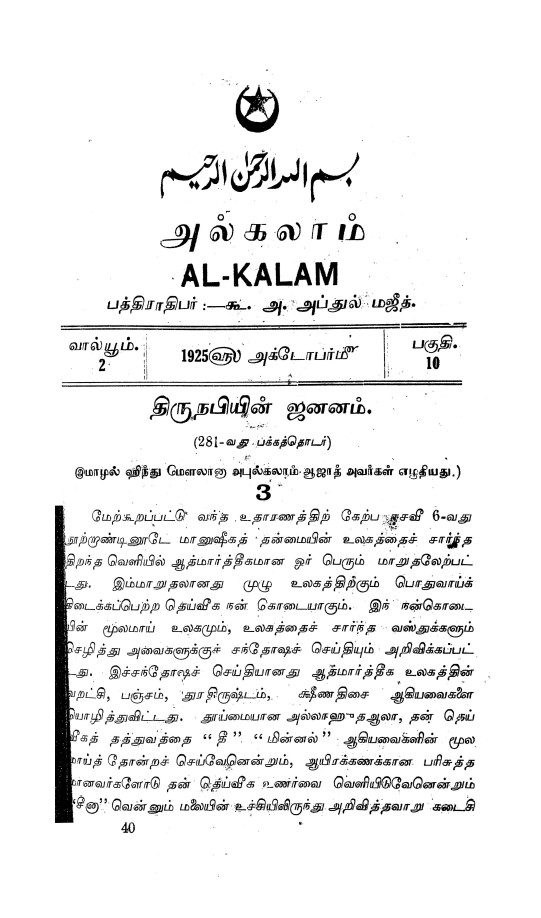 بسم الله الرحمن الرحيم
அல்கலாம்
AL-KALAM
பத்திராதிபர் :—கூ. அ. அப்துல் மஜீத்.
வால்யூம். 2
1925௵ அக்டோபர்௴
பகுதி. 10
திருநபியின் ஜனனம்.
(281-வது பக்கத்தொடர்)
இமாமுல் ஹிந்து மௌலானா அபுல்கலாம் ஆஜாத் அவர்கள் எழுதியது.)
3
மேற்கூறப்பட்டு வந்த உதாரணத்திற் கேற்ப ஈசவீ 6-வது
நூற்றாண்டினூடே மானுஷீகத் தன்மையின் உலகத்தைச் சார்ந்த
திறந்த வெளியில் ஆத்மார்த்தீகமான ஓர் பெரும் மாறுதலேற்பட்
டது. இம்மாறுதலானது முழு உலகத்திற்கும் பொதுவாய்க்
கிடைக்கப்பெற்ற தெய்வீக நன் கொடையாகும். இந் நன்கொடை
யின் மூலமாய் உலகமும், உலகத்தைச் சார்ந்த வஸ்துக்களும்
செழித்து அவைகளுக்குச் சந்தோஷச் செய்தியும் அறிவிக்கப்பட்
டது. இச்சந்தோஷச் செய்தியானது ஆத்மார்த்தீக உலகத்தின்
வறட்சி, பஞ்சம், துரதிருஷ்டம், க்ஷீணதிசை ஆகியவைகளை
யொழித்துவிட்டது. தூய்மையான அல்லாஹுதஆலா, தன் தெய்
வீகத் தத்துவத்தை “தீ” “மின்னல்” ஆகியவைகளின் மூல
மாய்த் தோன்றச் செய்வேனென்றும், ஆயிரக்கணக்கான பரிசுத்த
மானவர்களோடு தன் தெய்வீக உணர்வை வெளியிடுவேனென்றும்
“சீனா” வென்னும் மலையின் உச்சியிலிருந்து அறிவித்தவாறு கடைசி
40